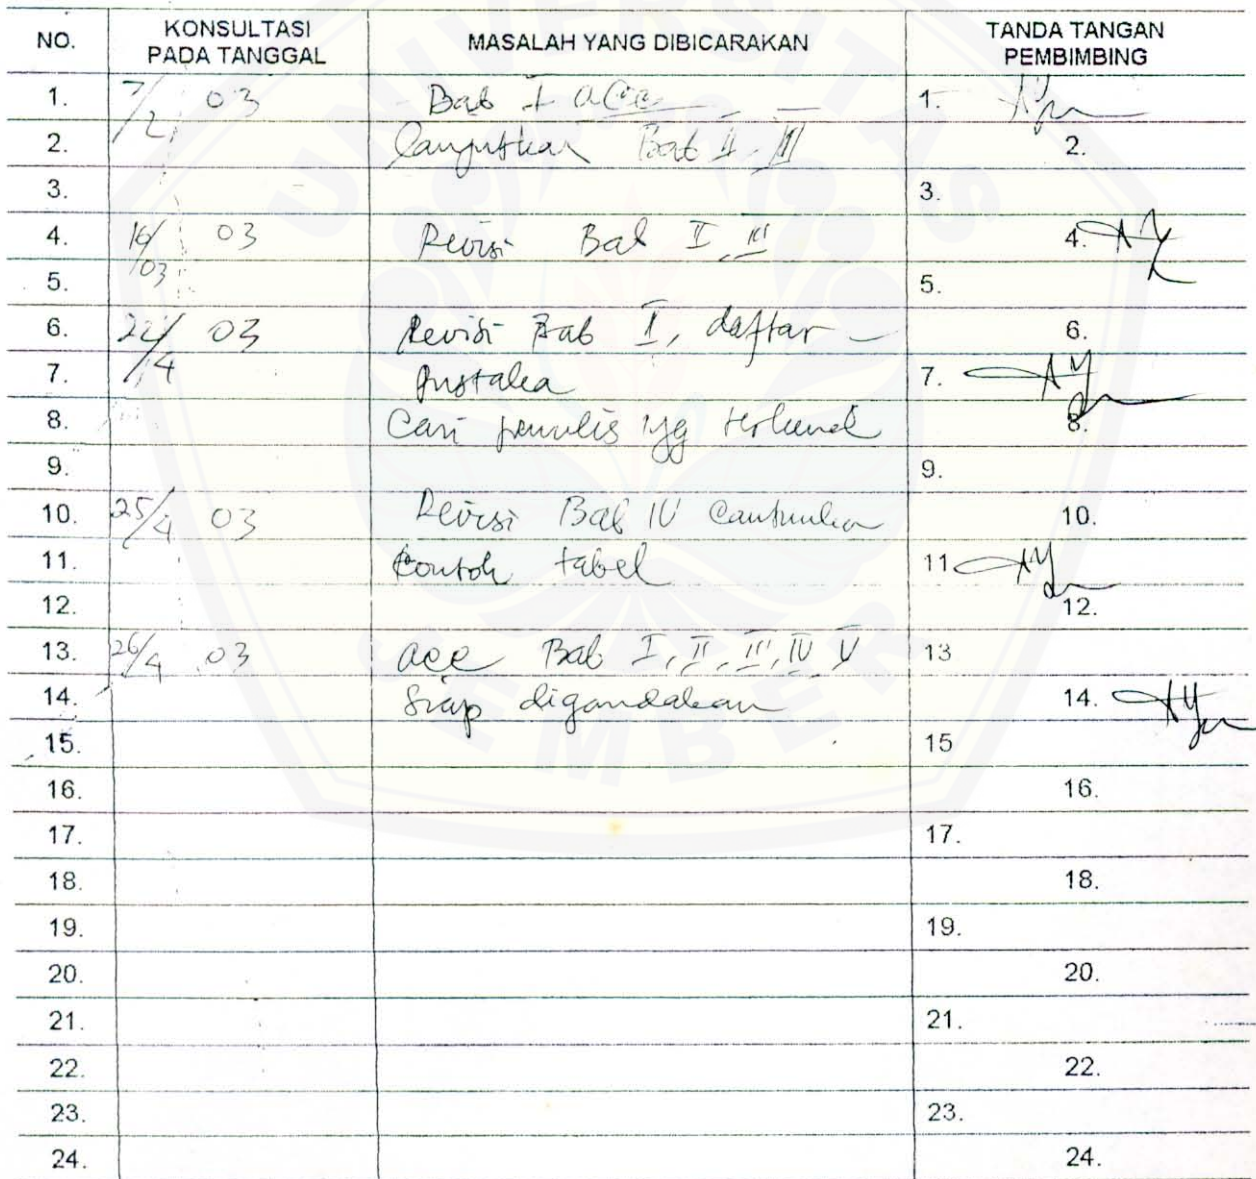 NO. KONSULTASI PADA TANGGAL MASALAH YANG DIBICARAKAN TANDA TANGAN PEMBIMBING
1. 7/2 03 Bab I acc 1.
2. lanjutkan Bab II, III 2.
3. 3.
4. 16/03 03 Revisi Bab I, III 4.
5. 5.
6. 22/4 03 Revisi Bab I, daftar 6.
7. pustaka 7.
8. Cari penulis yg terkenal 8.
9. 9.
10. 25/4 03 Revisi Bab IV Cantumkan 10.
11. Contoh tabel 11
12. 12.
13. 26/4 03 acc Bab I, II, III, IV V 13
14. Siap digandakan 14.
15. 15
16. 16.
17. 17.
18. 18.
19. 19.
20. 20.
21. 21.
22. 22.
23. 23.
24. 24.
UNIVERSITAS
JEMBER